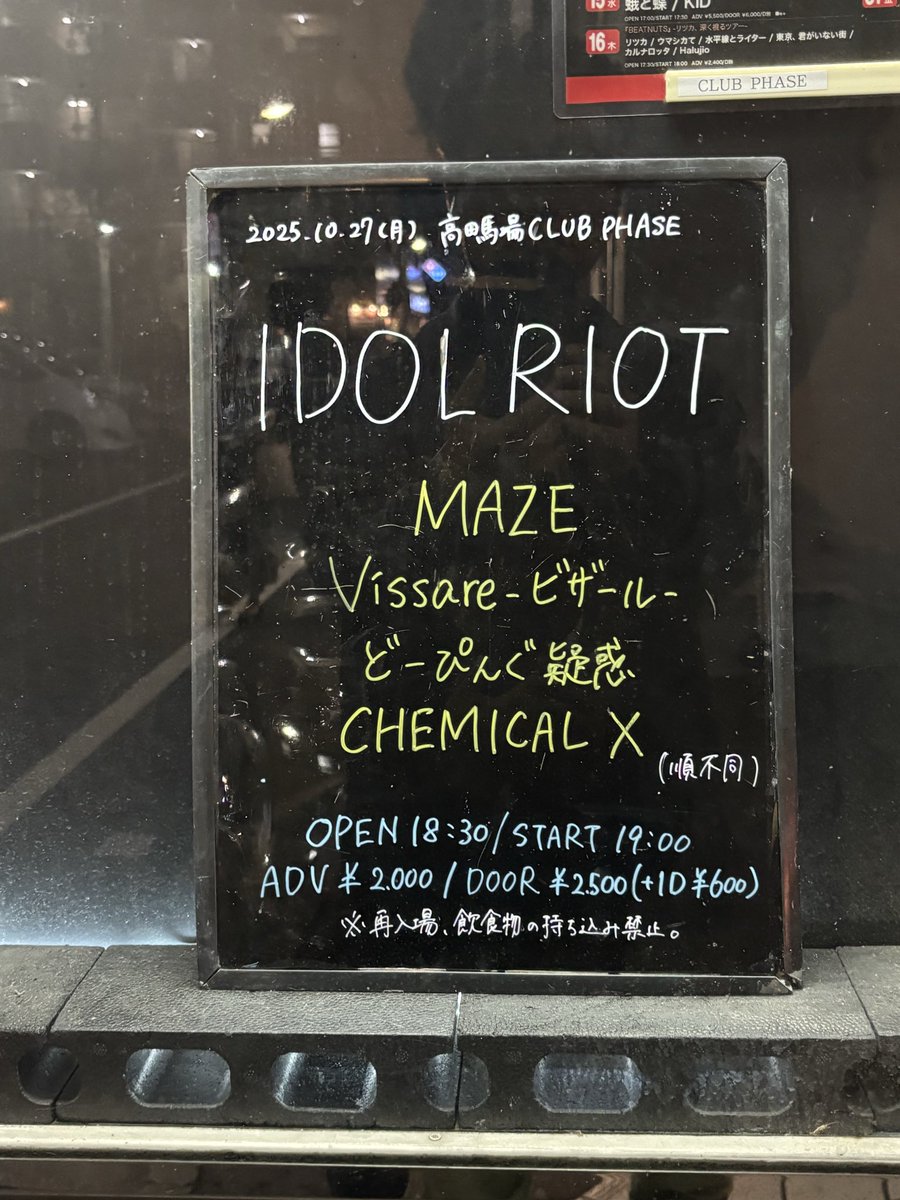 15 水 蛾と蝶 / KID
OPEN 17:00/START 17:30 ADV ¥5,500/DOOR ¥6,000/D別
『BEATNUTS』-リツカ、深く視るツアー-
16 木 リツカ / ウマシカて / 水平線とライター / 東京、君がいない街 /
カルナロッタ / Halujio
OPEN 17:30/START 18:00 ADV ¥2,400/D別
CLUB PHASE
2025.10.27(月) 高田馬場CLUB PHASE
IDOL RIOT
MAZE
Vissare-ビザール-
どーぴんぐ疑惑
CHEMICAL X
(順不同)
OPEN 18:30/START 19:00
ADV ¥2.000/DOOR ¥2.500(+1D ¥600)
※再入場、飲食物の持ち込み禁止。